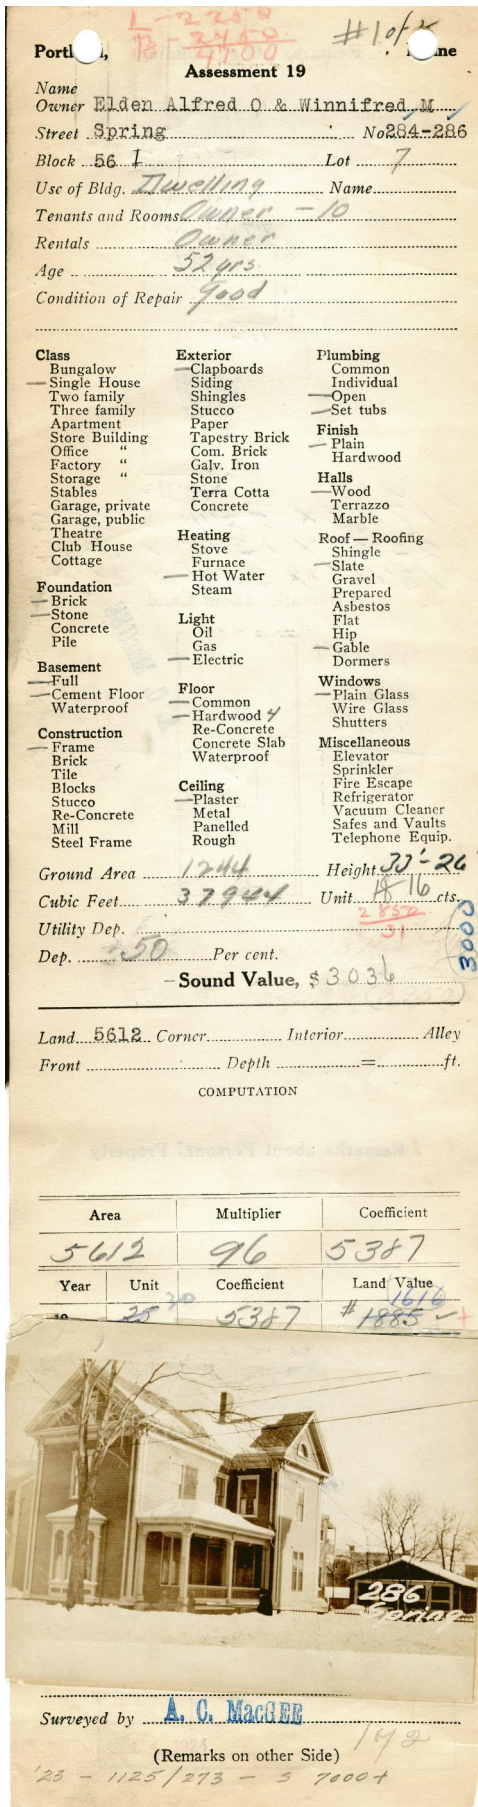 L - 2250
B - 2450
4700
#1 of
Portl d, ne
Assessment 19
Name
Owner Elden Alfred O & Winnifred M
Street Spring No 284-286
Block 56 I Lot 7
Use of Bldg. Dwelling Name
Tenants and Rooms Owner - 10
Rentals Owner
Age 52 yrs.
Condition of Repair good
Class
Bungalow
Single House
Two family
Three family
Apartment
Store Building
Office "
Factory "
Storage "
Stables
Garage, private
Garage, public
Theatre
Club House
Cottage
Foundation
Brick
Stone
Concrete
Pile
Basement
Full
Cement Floor
Waterproof
Construction
Frame
Brick
Tile
Blocks
Stucco
Re-Concrete
Mill
Steel Frame
Exterior
Clapboards
Siding
Shingles
Stucco
Paper
Tapestry Brick
Com. Brick
Galv. Iron
Stone
Terra Cotta
Concrete
Heating
Stove
Furnace
Hot Water
Steam
Light
Oil
Gas
Electric
Floor
Common
Hardwood 4
Re-Concrete
Concrete Slab
Waterproof
Ceiling
Plaster
Metal
Panelled
Rough
Plumbing
Common
Individual
Open
Set tubs
Finish
Plain
Hardwood
Halls
Wood
Terrazzo
Marble
Roof — Roofing
Shingle
Slate
Gravel
Prepared
Asbestos
Flat
Hip
Gable
Dormers
Windows
Plain Glass
Wire Glass
Shutters
Miscellaneous
Elevator
Sprinkler
Fire Escape
Refrigerator
Vacuum Cleaner
Safes and Vaults
Telephone Equip.
Ground Area 1244 Height 33'-26
Cubic Feet 37944 Unit 18 16 cts.
2850
31
Utility Dep.
3000
Dep. 50 Per cent.
Sound Value, $ 3036
Land 5612 Corner Interior Alley
Front Depth = ft.
COMPUTATION
Area Multiplier Coefficient
5612 96 5387
Year Unit Coefficient Land Value
1616
19 35 30 5387 # 1885
286
Spring
Surveyed by A. C. MacGEE
(Remarks on other Side)
142
'23 - 1125/273 - S 7000+